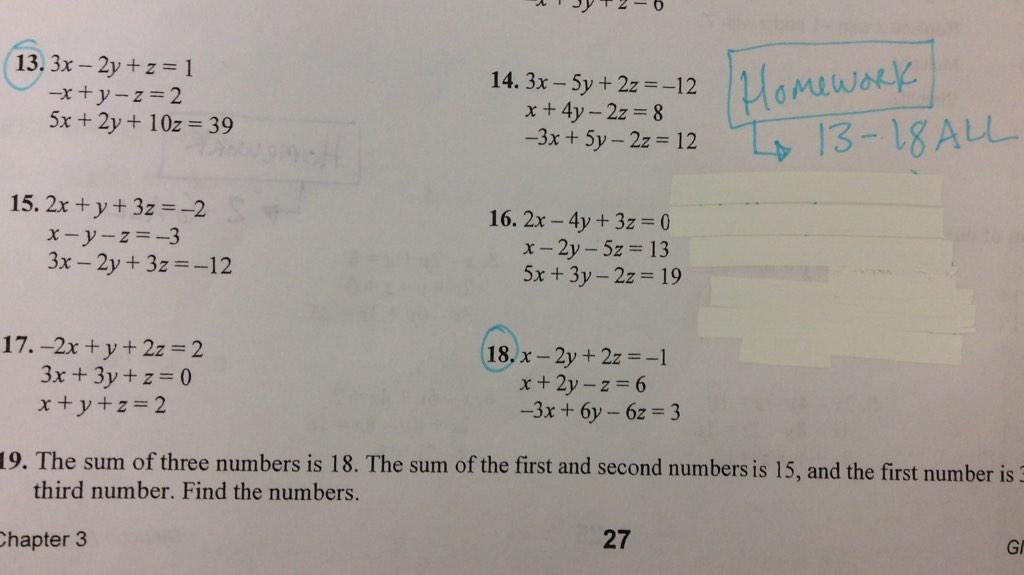 13. 3x – 2y + z = 1
–x + y – z = 2
5x + 2y + 10z = 39
14. 3x – 5y + 2z = –12
x + 4y – 2z = 8
–3x + 5y – 2z = 12
HOMEWORK
↳ 13-18 ALL
15. 2x + y + 3z = –2
x – y – z = –3
3x – 2y + 3z = –12
16. 2x – 4y + 3z = 0
x – 2y – 5z = 13
5x + 3y – 2z = 19
17. –2x + y + 2z = 2
3x + 3y + z = 0
x + y + z = 2
18. x – 2y + 2z = –1
x + 2y – z = 6
–3x + 6y – 6z = 3
19. The sum of three numbers is 18. The sum of the first and second numbers is 15, and the first number is
third number. Find the numbers.
Chapter 3
27